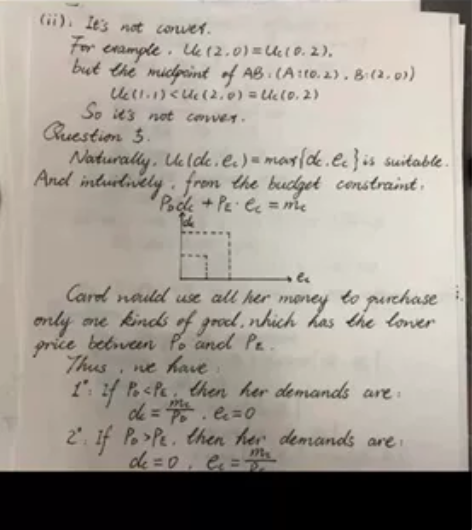 (ii). It's not convex.
For example, Uc(2,0)=Uc(0,2),
but the midpoint of AB. (A:(0,2), B:(2,0))
Uc(1,1)<Uc(2,0)=Uc(0,2)
So it's not convex.
Question 5.
Naturally, Uc(dc,ec)=max{dc,ec} is suitable.
And intuitively, from the budget constraint:
PDdc + PE·ec = mc
dc
ec
Carol would use all her money to purchase
only one kinds of good, which has the lower
price between PD and PE.
Thus, we have:
1°: If PD<PE, then her demands are:
dc = mc/PD, ec=0
2°: If PD>PE, then her demands are:
dc=0, ec = mc/